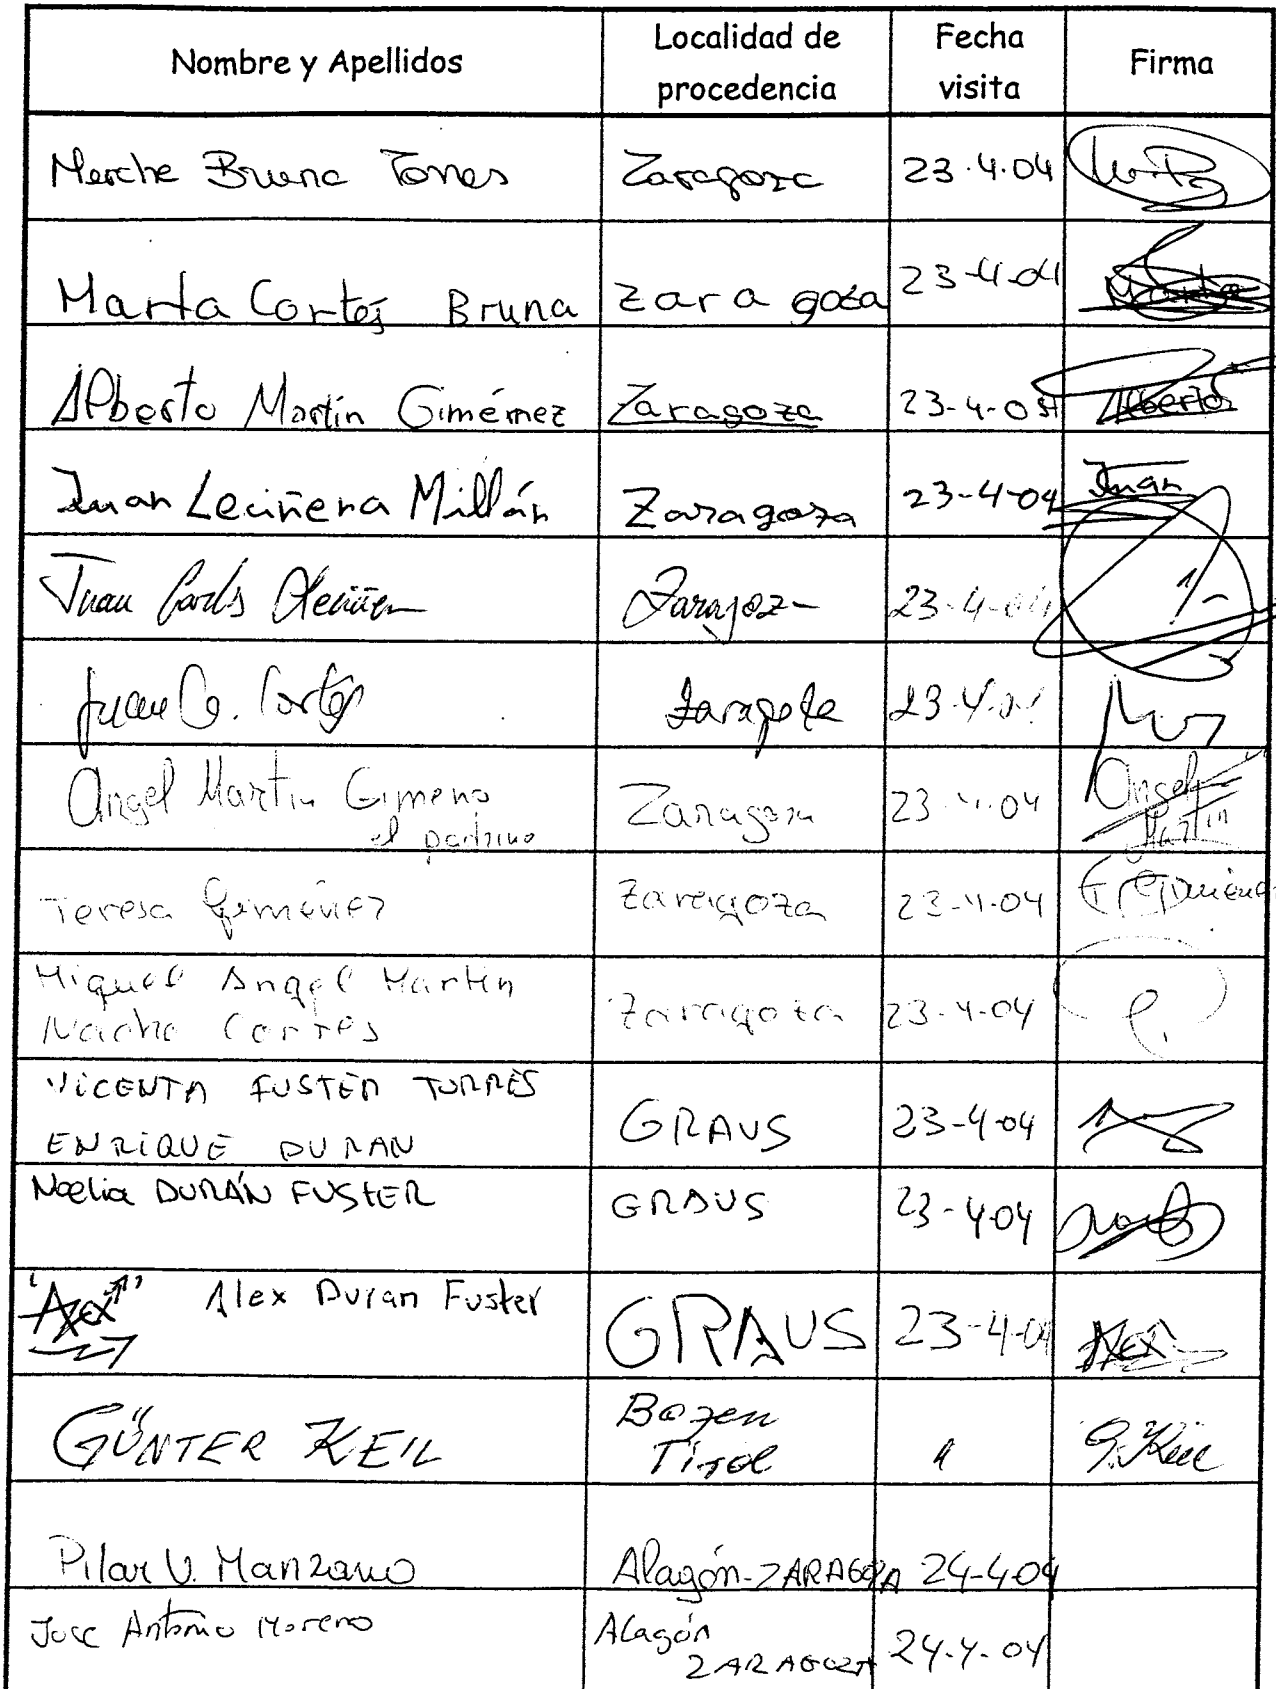 Nombre y Apellidos Localidad de procedencia Fecha visita Firma
Merche Bruna Torres Zaragoza 23.4.04
Marta Cortés Bruna Zaragoza 23-4-04 Marta
Alberto Martín Giménez Zaragoza 23-4-04 Alberto
Juan Leciñena Millán Zaragoza 23-4-04 Juan
Juan Carlos Zaragoza 23-4-04
Juan C. Cortés Zaragoza 23-4-04
Angel Martin Gimeno Zaragoza 23-4-04 Angel Martin
el
Teresa Gimenez Zaragoza 23-4-04
Miguel Angel Martin Zaragoza 23-4-04
Nacho Cortés
VICENTA FUSTER TORRES GRAUS 23-4-04
ENRIQUE DURAN
Noelia DURÁN FUSTER GRAUS 23-4-04
"Alex" Alex Duran Fuster GRAUS 23-4-04 Alex
GÜNTER KEIL Bozen Tirol " G. Keil
Pilar V. Manzano Alagón-ZARAGOZA 24-4-04
Jose Antonio Moreno Alagón ZARAGOZA 24-4-04